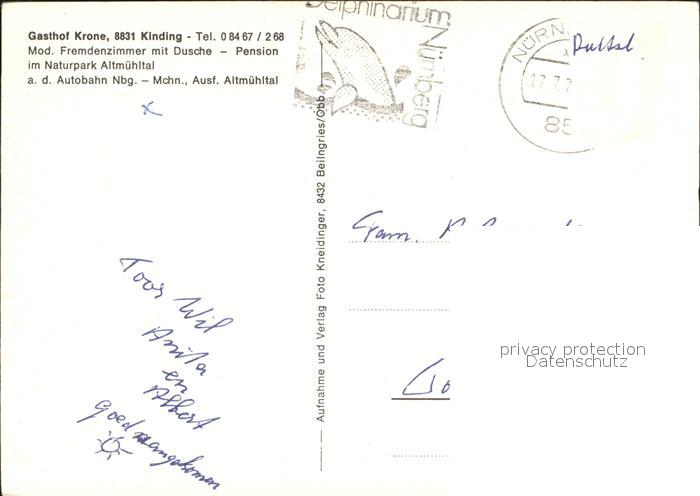 Gasthof Krone, 8831 Kinding - Tel. 0 84 67 / 2 68
Mod. Fremdenzimmer mit Dusche – Pension
im Naturpark Altmühltal
a. d. Autobahn Nbg. – Mchn., Ausf. Altmühltal
Delphinarium
Nürnberg
NÜRN
17.7.7
85
Aufnahme und Verlag Foto Kneidinger, 8432 Beilngries/Obb.
Fam.
privacy protection
Datenschutz
Toos Wil
Anita
en
Albert
goed aangekomen